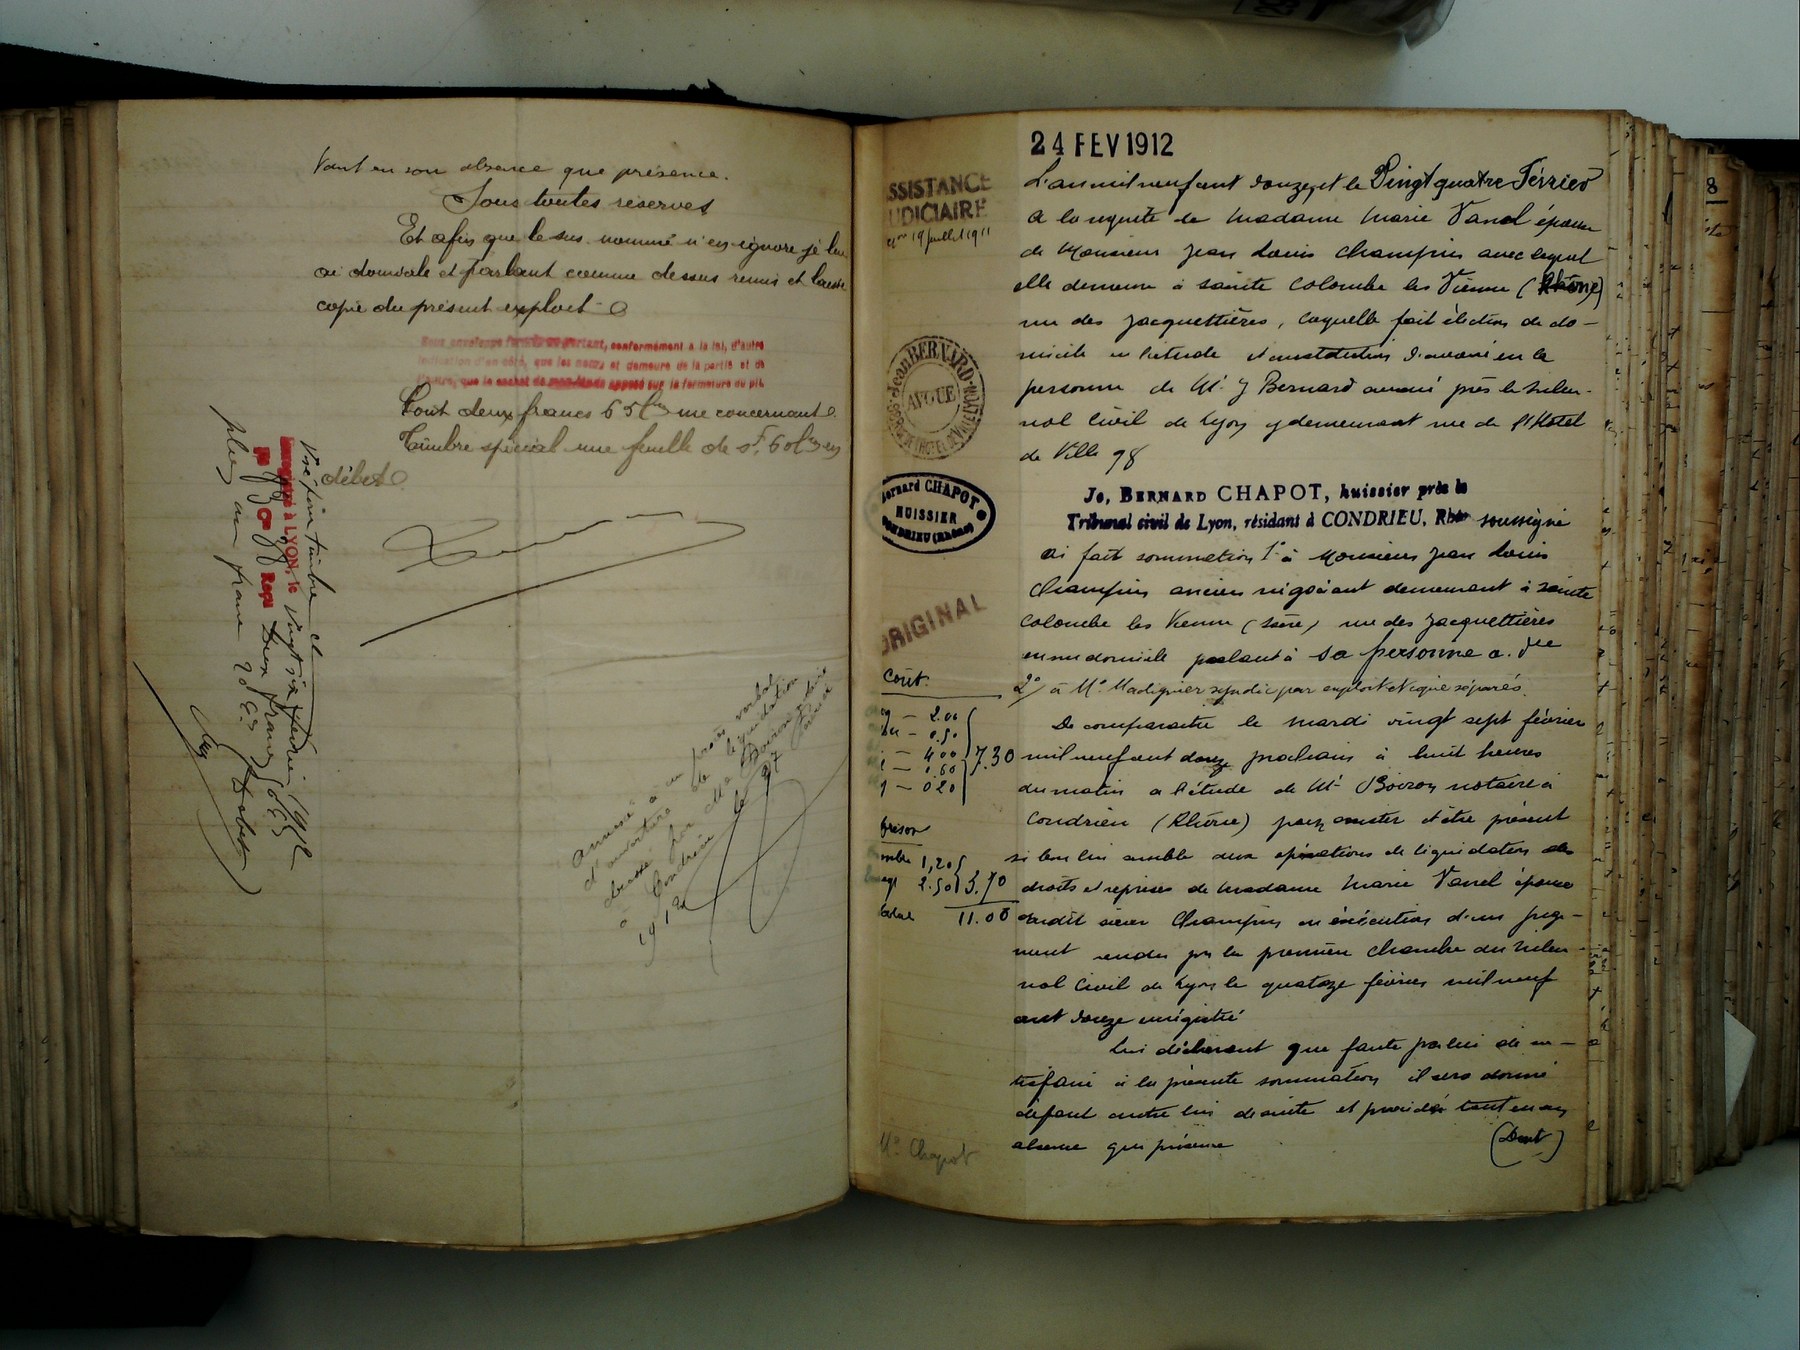 tant en son absence que présence.
Sous toutes réserves
Et afin que le sus nommé n'en ignore je lui
ai domicile et parlant comme dessus remis et laissé
copie du présent exploit
Sous enveloppe fermée ne portant, conformément à la loi, d'autre
indication d'un côté, que les noms et demeure de la partie et de
l'autre, que le cachet de mon étude apposé sur la fermeture du pli.
Cout deux francs 65 cmes me concernant
Timbre spécial une feuille de 0f.60 cmes en
débet
Visé pour timbre et
Enregistré à LYON, le vingt six février 1912
Reçu deux francs
plus un franc
annexé à un procès verbal
d'ouverture de liquidation
dressé par Me Boiron notaire
à Condrieu le 27 février
1912
24 FEV 1912
L'an mil neuf cent douze, et le Vingt quatre Février
A la requête de Madame Marie Vanel épouse
de Monsieur Jean Louis Champin avec lequel
elle demeure à Sainte Colombe les Vienne (Rhône)
rue des Jacquettières, laquelle fait élection de do-
micile en l'étude et constitution d'avoué en la
personne de Me J Bernard avoué près le tribu-
nal Civil de Lyon y demeurant rue de l'Hotel
de Ville 98
Je, BERNARD CHAPOT, huissier près le
Tribunal civil de Lyon, résidant à CONDRIEU, Rhône soussigné
ai fait sommation 1° à Monsieur Jean Louis
Champin ancien négociant demeurant à Sainte
Colombe les Vienne rue des Jacquettières
en son domicile parlant à sa personne a. dit
2°/ à Me Madignier syndic par exploit et copie séparés.
De comparaitre le mardi vingt sept février
mil neuf cent douze prochain à huit heures
du matin a l'étude de Me Boiron notaire à
Condrieu (Rhône) pour assister et être présent
si bon lui semble aux opérations de liquidation des
droits et reprises de Madame Marie Vanel épouse
dudit sieur Champin en exécution d'un juge-
ment rendu par la première chambre du tribu-
nal Civil de Lyon le quatorze février mil neuf
cent douze enregistré
Lui déclarant que faute par lui de sa-
tisfaire à la présente sommation il sera donné
défaut contre lui de suite et procédé tant en son
absence que présence
ASSISTANCE
JUDICIAIRE
on 19 juillet 1911
Jean BERNARD
AVOUÉ
98, RUE DE L'HOTEL DE VILLE, LYON
Bernard CHAPOT
HUISSIER
CONDRIEU (Rhône)
ORIGINAL
Coût.
2.00
0.50
4.00
0.60
0.20
7.30
Trésor
timbre 1,20
2.50
3.70
total 11.00
Me Chapot
8